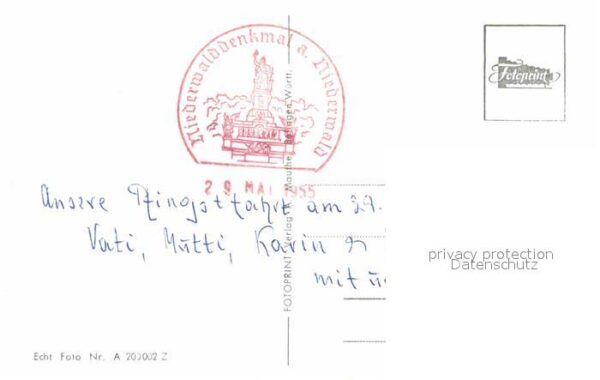 Niederwalddenkmal a. Niederwald
29 MAI 1955
Fotoprint
Unsere Pfingstfahrt am 29.
Vati, Mutti, Karin
mit
privacy protection
Datenschutz
FOTOPRINT Verlag Mauthe, Württ.
Echt Foto Nr. A 200002 Z